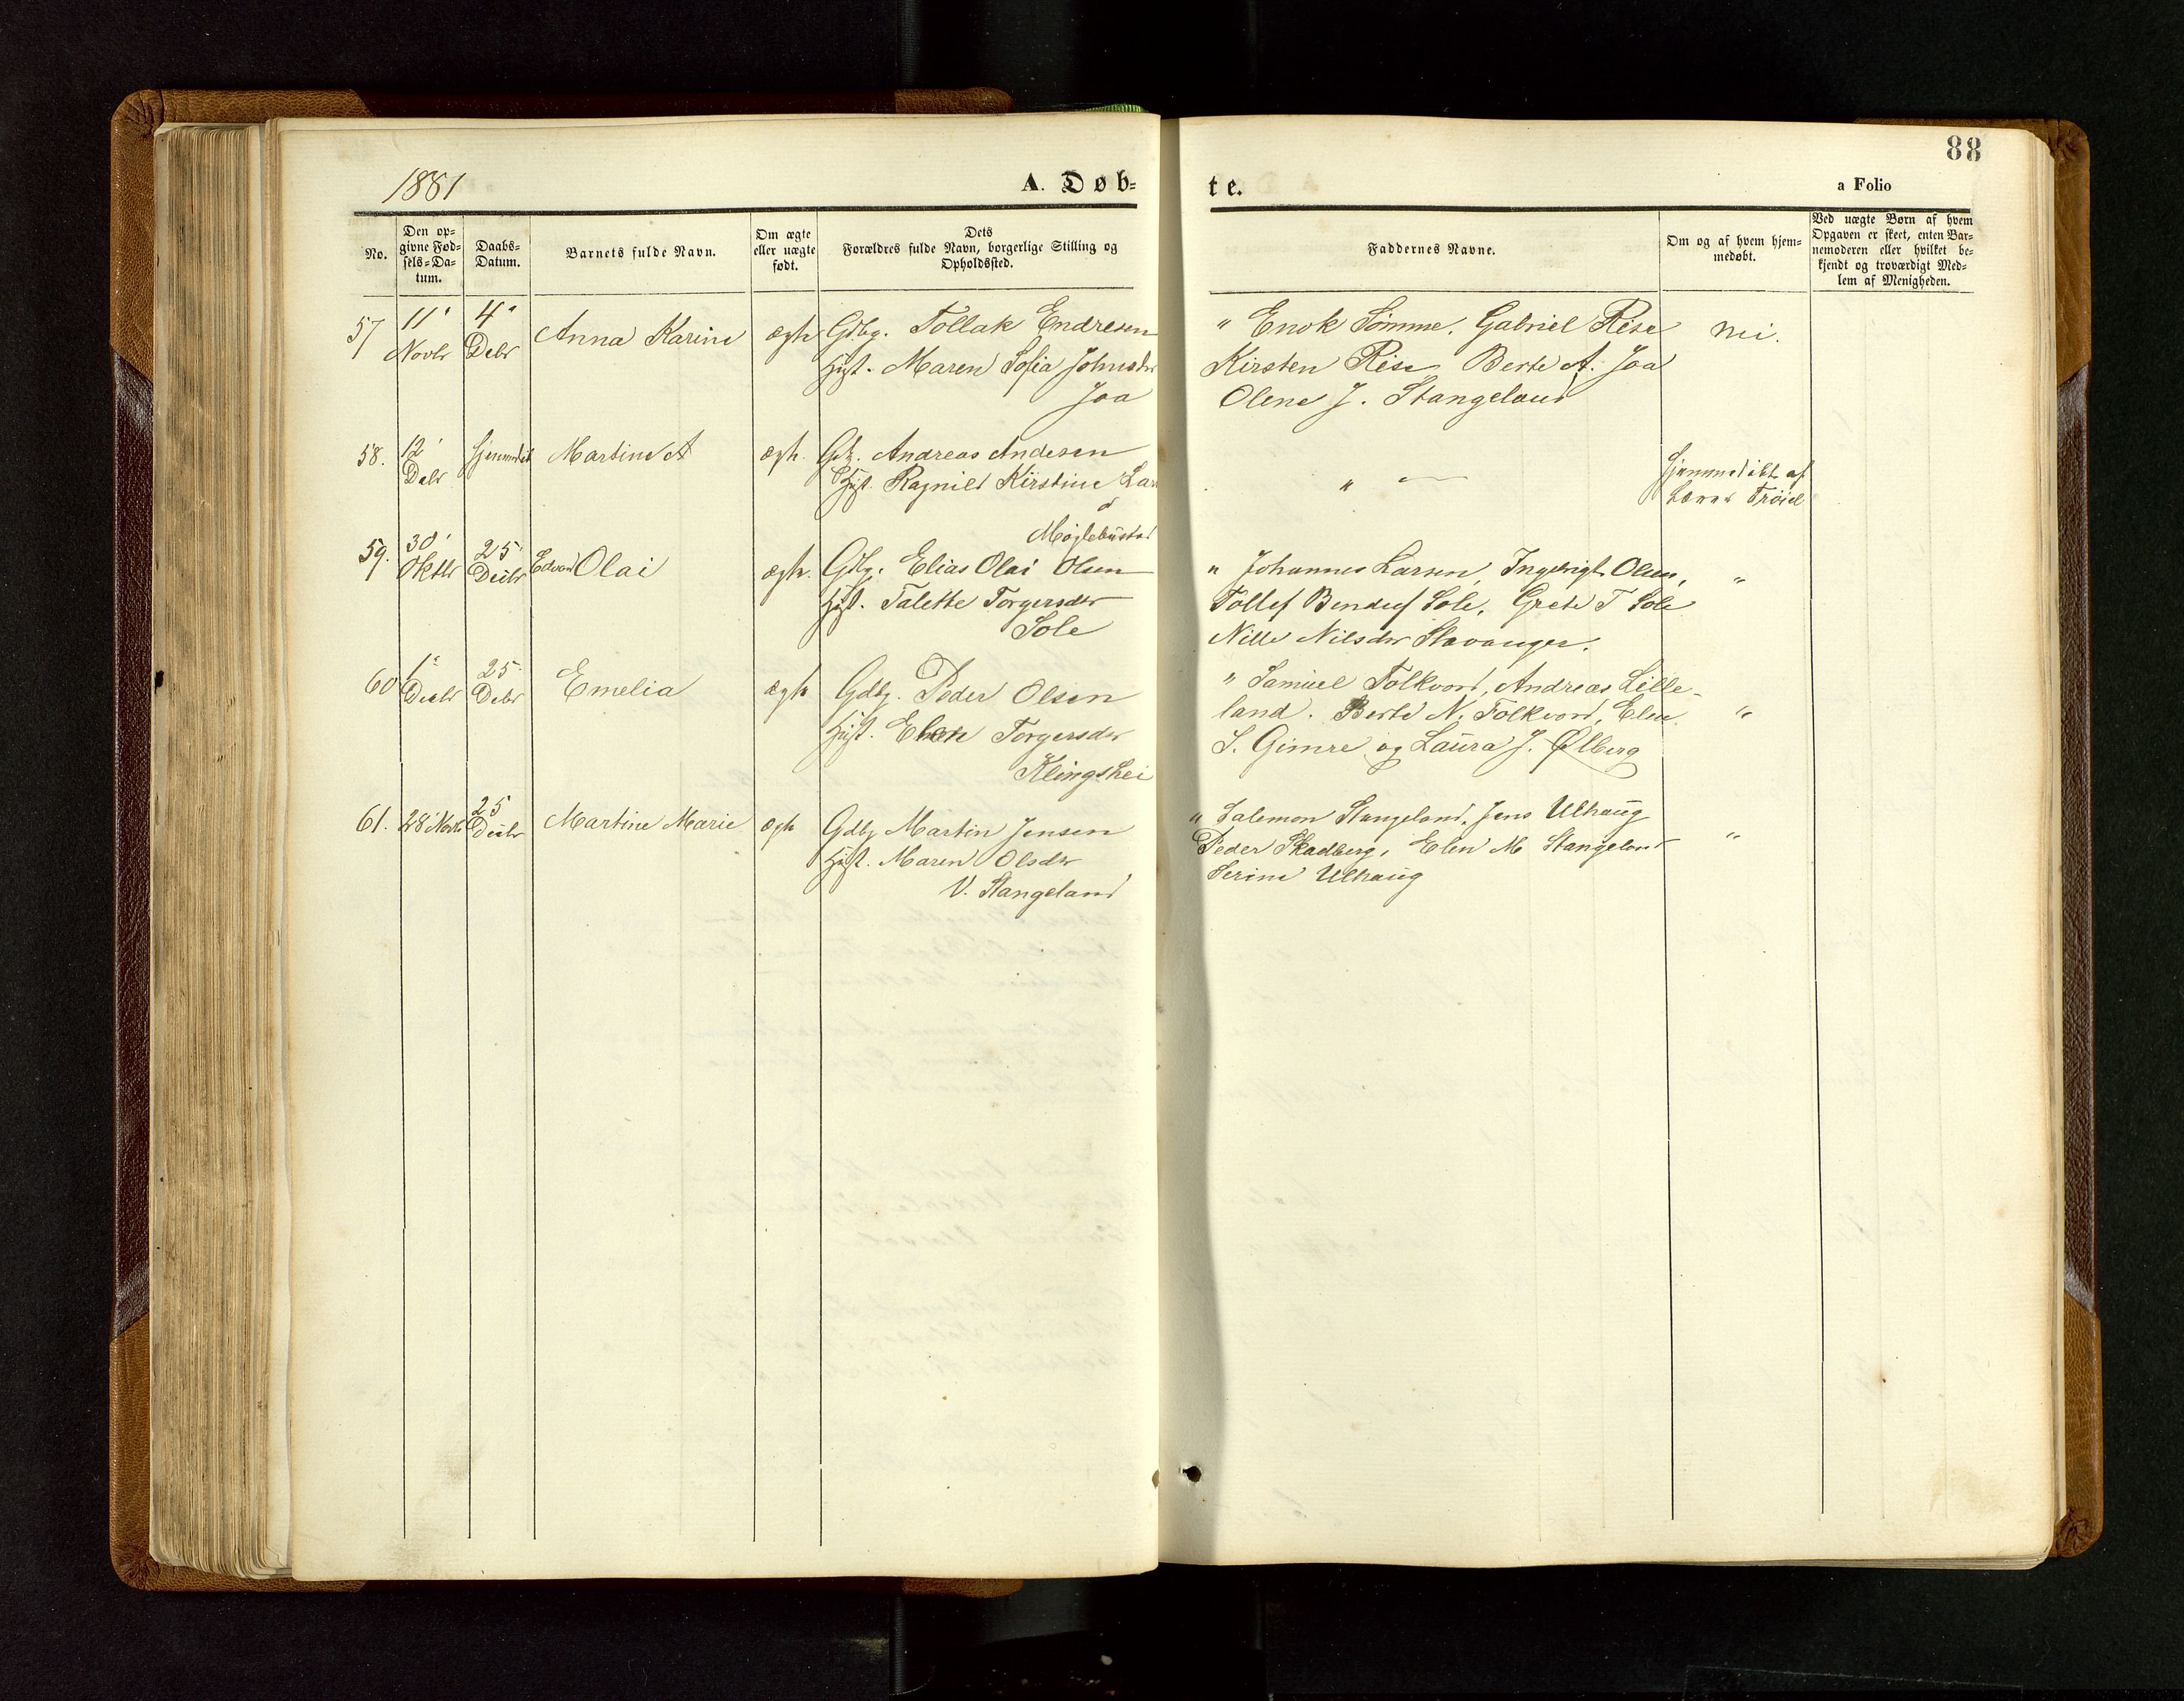 88
1881
A. Døb-
te.
a Folio
No.
Den op-
givne Fød-
sels-Da-
tum.
Daabs-
Datum.
Barnets fulde Navn.
Om ægte
eller uægte
født.
Dets
Forældres fulde Navn, borgerlige Stilling og
Opholdssted.
Faddernes Navne.
Om og af hvem hjem-
medøbt.
Ved uægte Børn af hvem
Opgaven er skeet, enten Bar-
nemoderen eller hvilket be-
kjendt og troværdigt Med-
lem af Menigheden.
57
11'
Novbr
4'
Debr
Anna Karine
ægte
Gdbg. Tollak Endresen
Hust. Maren Sofia Johnsdr
Joa
" Enok Sømme, Gabriel Rise
Kirsten Rise Berte A. Joa
Olene J. Stangeland
nei.
58.
12'
Debr
hjemmedøbt
Martine A
ægte.
Andreas Andesen
Hust. Ragnild Kirstine Lars
d
Møglebustad
" —
Hjemmedøbt af
Lærer Trøiel
59.
30'
Oktbr
25'
Decbr
Edvard Olai
ægte.
Gdbg. Elias Olai Olsen
Hust. Talette Torgersdr
Sole
" Johannes Larsen, Ingebrigt Olsen,
Tollef Sole, Grete T Sole
Nille Nilsdr Stavanger.
"
60
1'
Decbr
25'
Debr
Emelia
ægte
Gdbg. Peder Olsen
Hust. Elen Torgersdr
Klingshei
" Samuel Folkvord, Andreas Lille-
land. Berte N. Folkvord, Elen
S. Gimre og Laura J. Ølberg
"
61.
28' Novbr
25
Decbr
Martine Marie
ægte
Gdbg Martin Jensen
Hust. Maren Olsdr
V. Stangeland
" Salemon Stangeland, Jens Ulhaug
Peder Skadberg, Elen M Stangeland
Serine Ulhaug
"